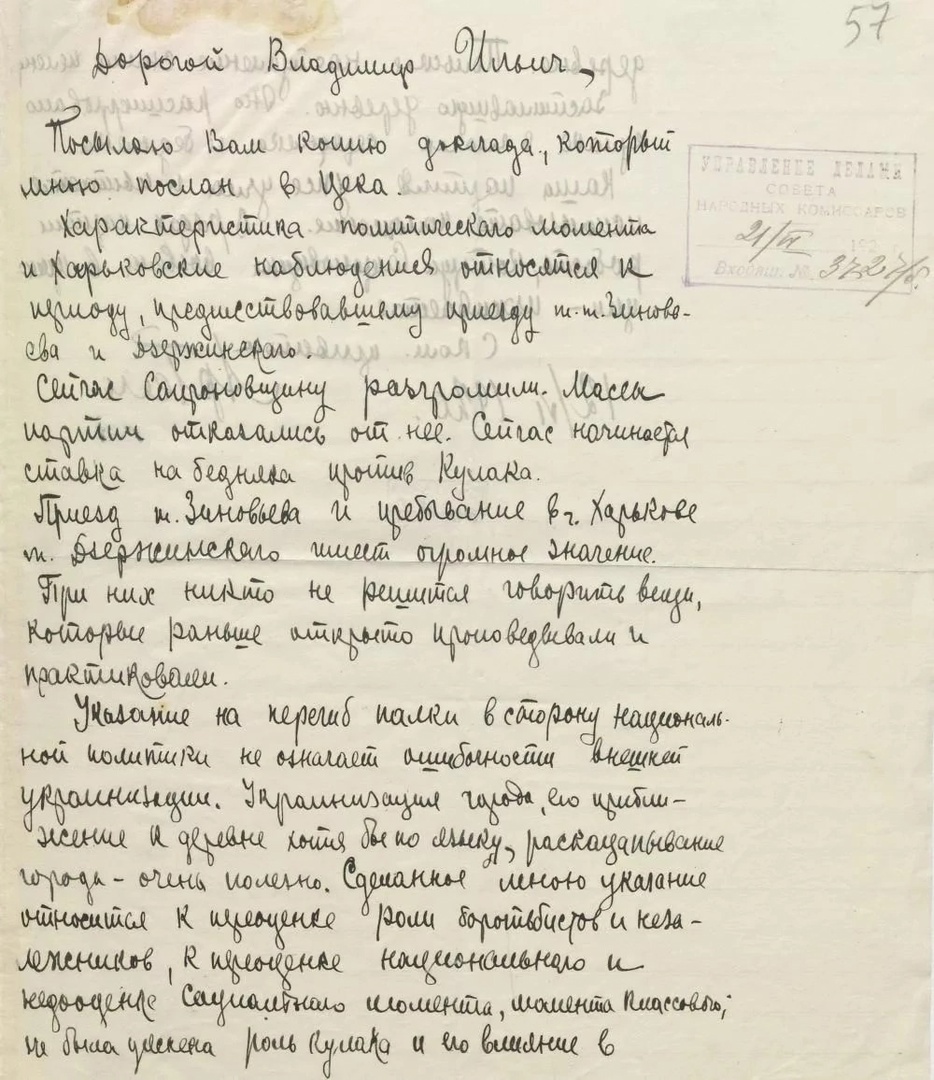 57
Дорогой Владимир Ильич,
УПРАВЛЕНИЕ ДЕЛАМИ
СОВЕТА
НАРОДНЫХ КОМИССАРОВ
21/VI 192
Входящ. № 3727/б.
Посылаю Вам копию доклада, который
мною послан в Цека.
Характеристика политического момента
и Харьковские наблюдения относятся к
периоду, предшествовавшему приезду т.т. Зиновь-
ева и Дзержинского.
Сейчас Сапроновщину разгромили. Массы
партии отказались от нее. Сейчас начинается
ставка на бедняка против Кулака.
Приезд т. Зиновьева и пребывание в г. Харькове
т. Дзержинского имеет огромное значение.
При них никто не решится говорить вещи,
которые раньше открыто проповедывали и
практиковали.
Указание на перегиб палки в сторону националь-
ной политики не означает ошибочности внешней
украинизации. Украинизация города, его прибли-
жение к деревне хотя бы по языку, раскацапывание
города - очень полезно. Сделанное мною указание
относится к переоценке роли боротьбистов и неза-
лежников, к переоценке национального и
недооценке социального момента, момента классового;
не была учтена роль кулака и его влияние в